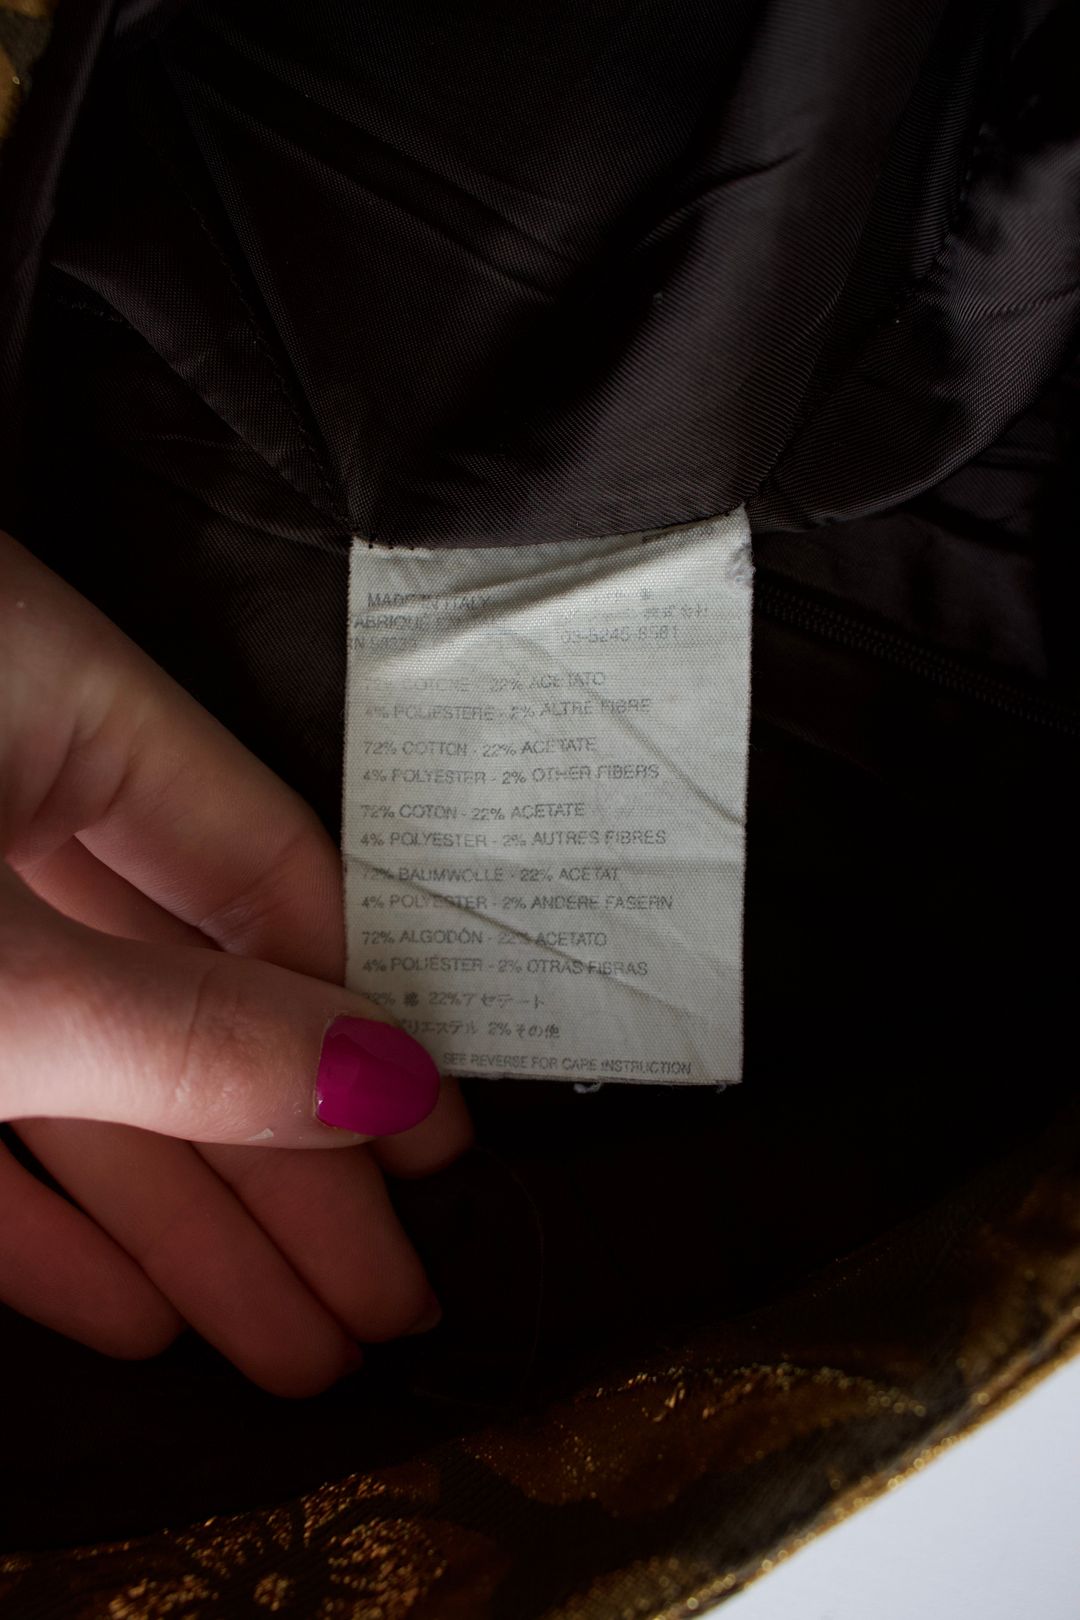 MADE IN ITALY
FABRIQUÉ
株式会社
03-5246-8581
72% COTONE - 22% ACETATO
4% POLIESTERE - 2% ALTRE FIBRE
72% COTTON - 22% ACETATE
4% POLYESTER - 2% OTHER FIBERS
72% COTON - 22% ACETATE
4% POLYESTER - 2% AUTRES FIBRES
72% BAUMWOLLE - 22% ACETAT
4% POLYESTER - 2% ANDERE FASERN
72% ALGODÓN - 22% ACETATO
4% POLIÉSTER - 2% OTRAS FIBRAS
72% 綿 22%アセテート
ポリエステル 2%その他
SEE REVERSE FOR CARE INSTRUCTION